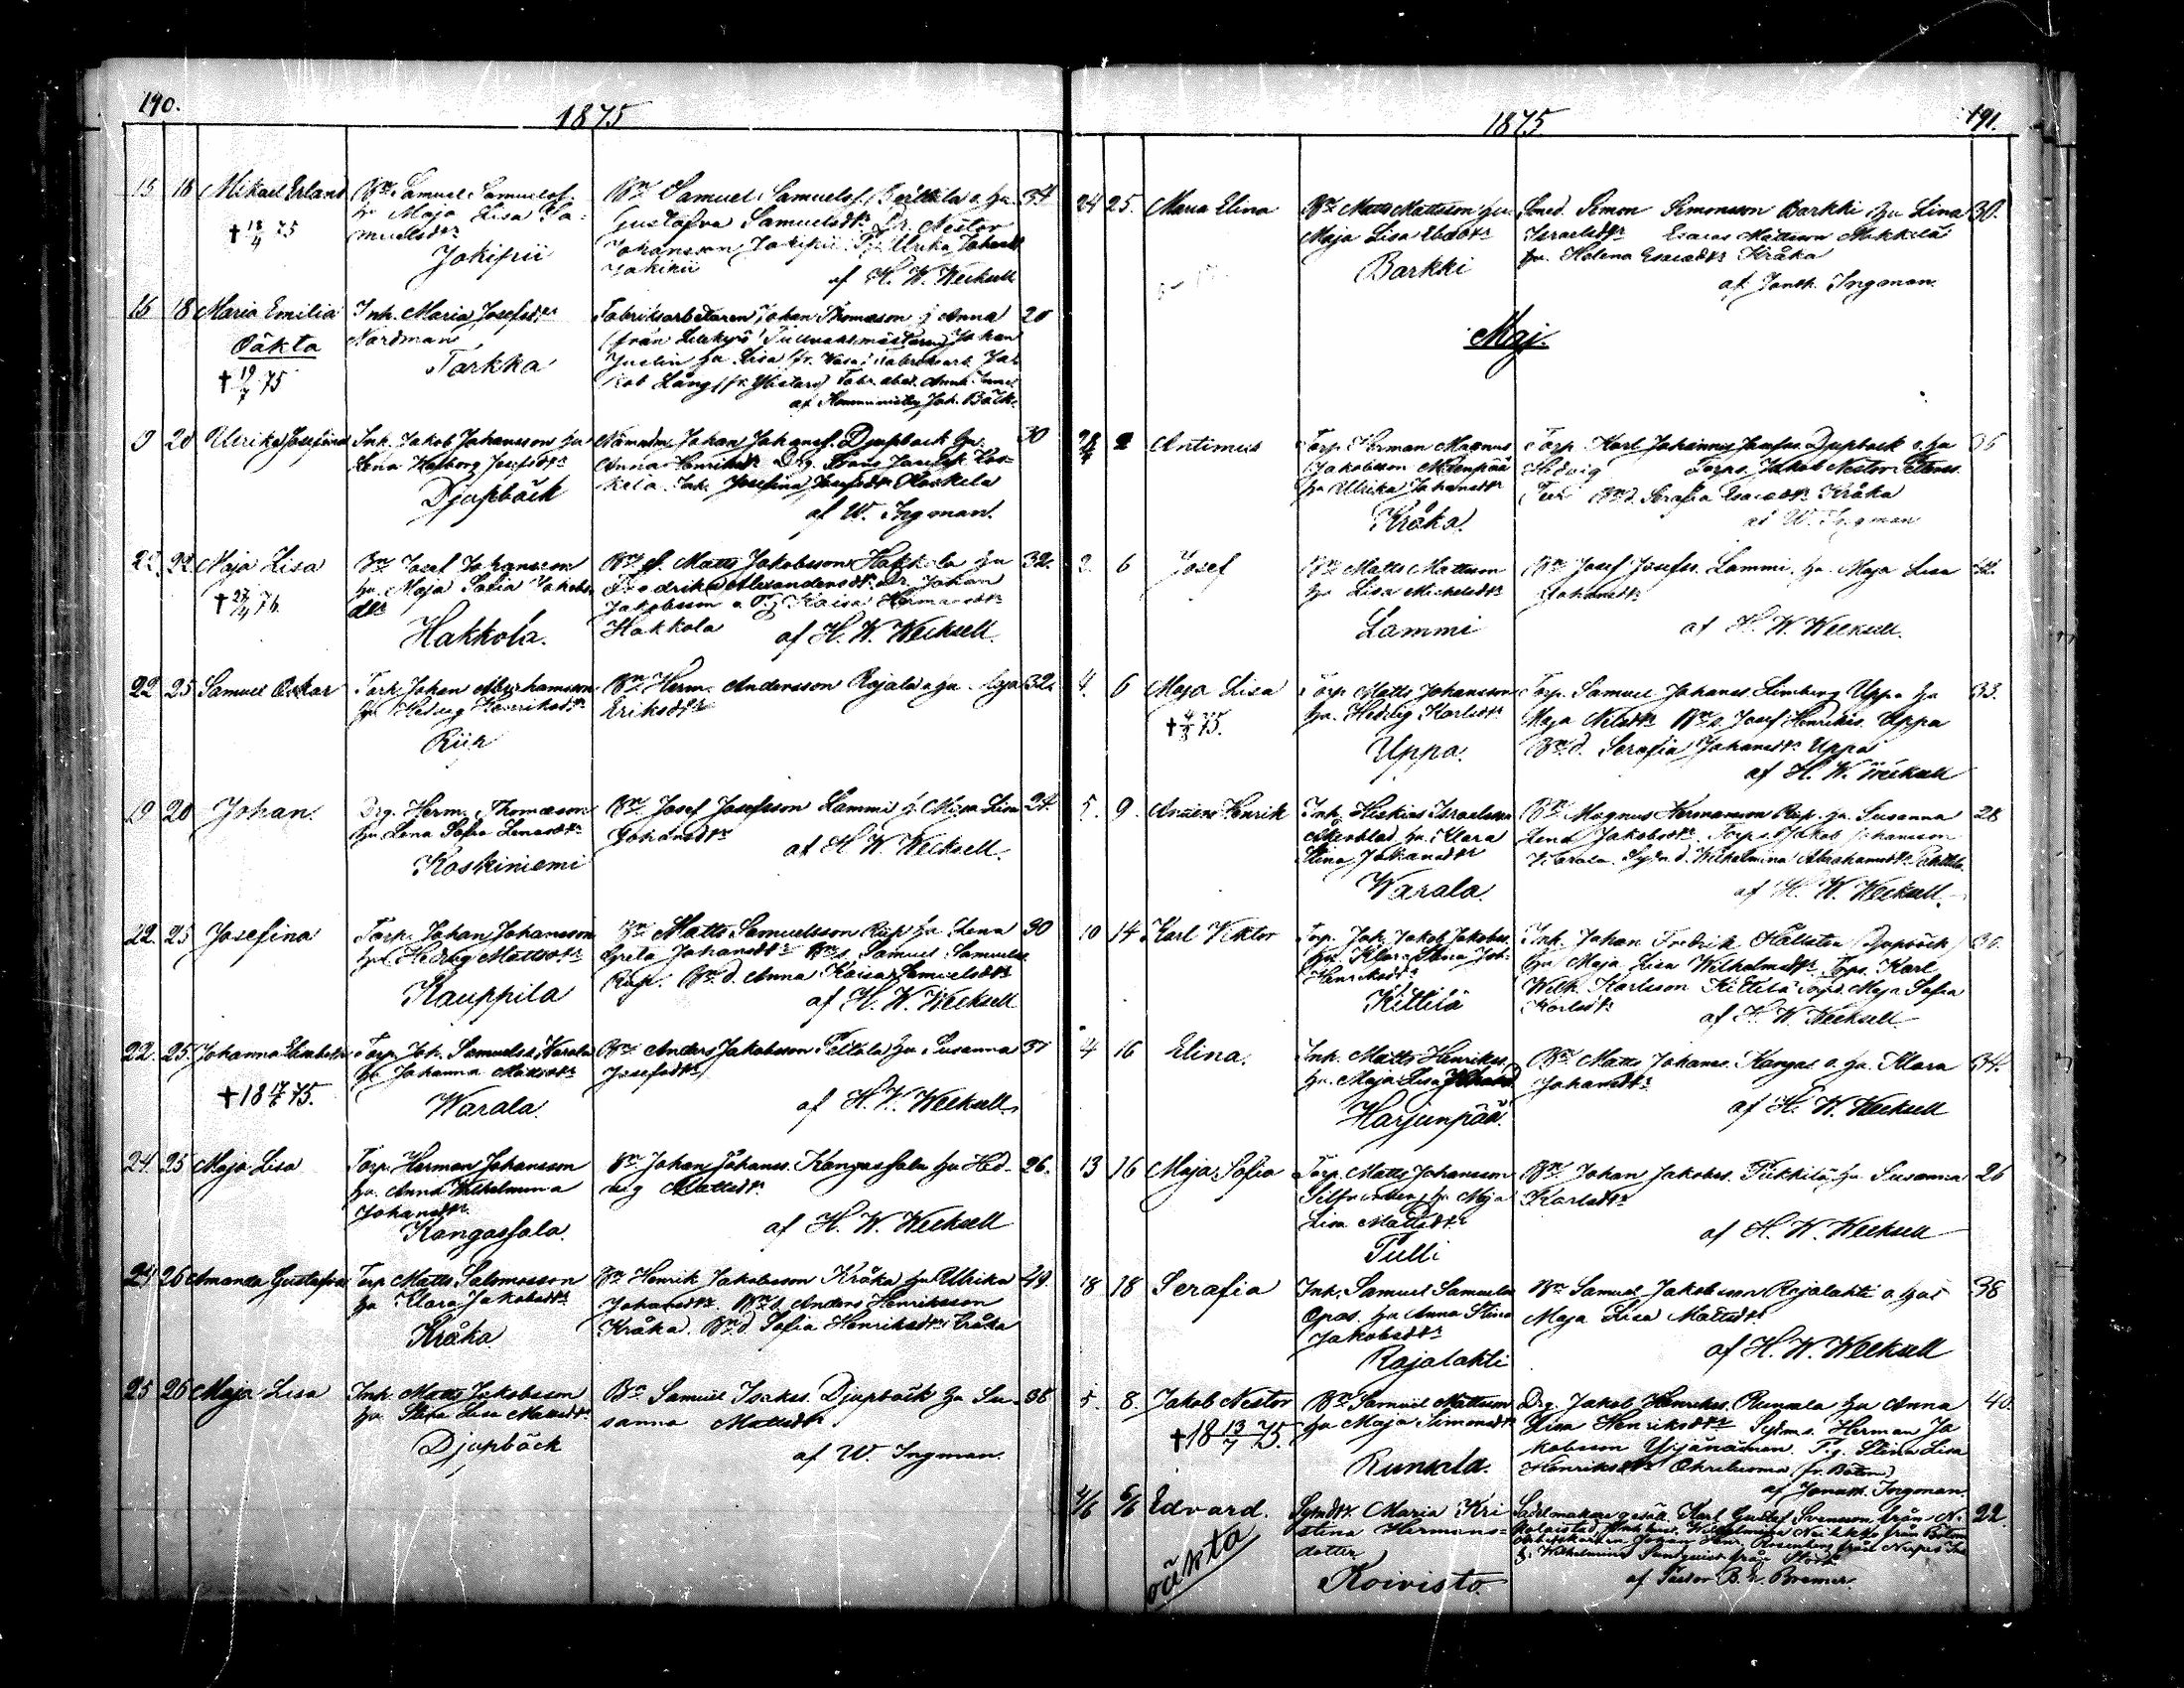 190.
1875
15 16 Mikael Erland
† 18/4 75
Bn Samuel Samuelss.
hu Maja Lisa Sa-
muelsdtr
Jokipii
Bn Samuel Samuelss. Perttula o. hu
Gustafva Samuelsdtr Dr. Nestor
Johansson Jokipii P. Ulrika Johansdtr
Jokipii
af H. W. Wecksell
34
16 18 Maria Emilia
Oäkta
† 19/7 75
Inh. Maria Josefsdtr
Nordman
Tarkka
Fabriksarbetaren Johan Thomasson j Anna
(från Lillkyro) Tullvaktmästaren Johan
Juslin hu Lisa (fr. Vasa) Fabriksarb. Ja-
kob Lång (fr. Ylistaro)
af Kommunister Joh. Bäck.
20
19 20 Ulrika Josefina
Inh. Jakob Johansson hu
Lena Walborg Josefsdtr
Djupbäck
Nämndm. Johan Johanss. Djupback hu
Anna Henriksdtr Drg. Frans Josefss. Kos-
kela Inh. Josefina Josefsdtr Koskela
af W. Ingman.
30
22 22 Maja Lisa
† 27/4 76
Bn Josef Johansson
hu. Maja Sofia Jakobs-
dtr
Hakkola.
Bns. Matts Jakobsson Hakkola hu
Fredrika Alexandersdtr. Dr. Johan
Jakobsson o P. Kaisa Hermansdtr
Hakkola af H. W. Wecksell
32.
22 25 Samuel Oskar
Torp. Johan Abrahamsson
hu Hedvig Henriksdtr
Riip
Bn Herm. Andersson Rajala o hu Maja
Eriksdtr
32.
19 20 Johan.
Drg. Herm. Thomasson
hu Lena Sofia
Koskiniemi
Bn Josef Josefsson Lammi h. Maja Lisa
Johansdtr
af H. W. Wecksell.
24.
22. 25 Josefina
Torp. Johan Johansson
hu Hedvig Mattsdtr
Kauppila
Bn Matts Samuelsson Riip hu Lena
Greta Johansdtr Bns. Samuel Samuelss
Riip. Bnd. Anna Kaisa Samuelsdtr
af H. W. Wecksell
30
22. 25. Johanna Elisabeth
† 18 75.
Torp. Joh. Samuelss. Warala
hu Johanna Mattsdtr
Warala.
Bn Anders Jakobsson Peltola hu Susanna
Josefsdtr
af H. W. Wecksell.
37
24. 25 Maja Lisa
Torp. Herman Johansson
hu. Anna Wilhelmina
Johansdtr
Kangassala.
Bn Johan Johanss. Kangassala hu Hed-
vig Mattsdtr.
af H. W. Wecksell
26.
24 26 Amanda Gustafva
Torp. Matts Salomosson
hu Klara Jakobsdtr
Kråka
Bn Henrik Jakobsson Kråka hu Ulrika
Johansdtr. Bns. Anders Henriksson
Kråka. Bnd. Sofia Henriksdtr Kråka
49.
25 26 Maja Lisa
Inh. Matts Jakobsson
hu Stina Lisa Mattsdtr
Djupbäck
Bn Samuel Isakss. Djupbäck hu Su-
sanna Mattsdtr
af W. Ingman.
38
1875
191.
24 25. Maria Elina
Bn Matts Mattsson hu
Maja Lisa
Barkki
Smed. Simon Simonsson Barkki hu Lina
Israelsdtr Esaias Mattsson Mikkilä
hu. Helena Esaiasdtr Kråka
af Jonth. Ingman.
30.
Maj.
28/4 2 Antimus
Torp. Herman Magnus
Jakobsson Mäenpää
hu Ulrika Johansdtr
Kråka.
Torp Karl Johannes Josefss. Djupback o. hu
Hedvig Torps. Jakob Nestor
Bnd. Serafia Esaiasdtr Kråka
af W. Ingman
35
2 6 Josef
Bn Matts Mattsson
hu Lisa Michelsdtr
Lammi
Bn Josef Josefss. Lammi, hu Maja Lisa
Johansdtr
af H. W. Wecksell.
42.
4. 6 Maja Lisa
† 75.
Torp. Matts Johansson
hu. Hedvig Karlsdtr
Uppa.
Torp. Samuel Johanss. Limberg Uppa hu
Maja Nilsdtr Bns. Josef Henrikss. Uppa
Bnd. Serafia Johansdtr Uppa
af H. W. Wecksell
33.
5. 9. Anders Henrik
Inh. Hiskias Israelsson
Åkerblad hu Klara
Stina Johansdtr
Warala.
Bn Magnus Hermansson Riip hu. Susanna
Lena Jakobsdtr. Torps. Jakob Johansson
Warala. Sytnd. Wilhelmina Abrahamsdtr
af H. W. Wecksell.
28
10 14 Karl Viktor
Torp. Joh. Jakob Jakobss.
hu. Klara Stina Joh.
Henriksdtr
Kittilä
Inh. Johan Fredrik Hällsten (Djupbäck)
hu Maja Lisa Wilhelmsdtr. Torps. Karl
Wilh. Karlsson Kittilä Torpd. Maja Sofia
Karlsdtr
af H. W. Wecksell
30.
4 16 Elina.
Inh. Matts Henrikss.
hu. Maja Lisa
Harjunpää.
Bn Matts Johanss. Kangas o hu. Klara
Johansdtr
af H. W. Wecksell
34.
13 16 Maja Sofia
Torp. Matts Johansson
hu Maja
Lisa Mattsdtr
Tulli
Bn Johan Jakobss. Pikkilä hu Susanna
Karlsdtr
af H. W. Wecksell
26
18 18 Serafia
Inh. Samuel Samuelss.
Opas. hu Anna Stina
Jakobsdtr
Rajalahti
Bn Samuel Jakobsson Rajalahti o hus
Maja Lisa Mattsdtr
af H. W. Wecksell
38
5. 8. Jakob Nestor
† 18 13/7 75.
Bn Samuel Mattsson
hu Maja Simonsdtr
Runsala.
Drg. Jakob Henrikss. Runsala hu Anna
Lisa Henriksdtr Sytms. Herman Ja
kobsson Yijänäinen. P.g. Stina Lisa
Henriksdtr (fr. Bötom)
af Jonath. Ingman.
40.
4/6 6/6 Edvard.
oäkta
Sytndtr. Maria Kri
stina Hermans-
dotter
Koivisto
Sadelmakare gesäll. Karl Gustaf Svensson från Ni-
kolaistad, Wilhelmina från Bötom
Johan Henr. Rosenberg från Nerpes
Wilhelmina Sundquist från Storå
af Pastor B. H. Bremer.
22.